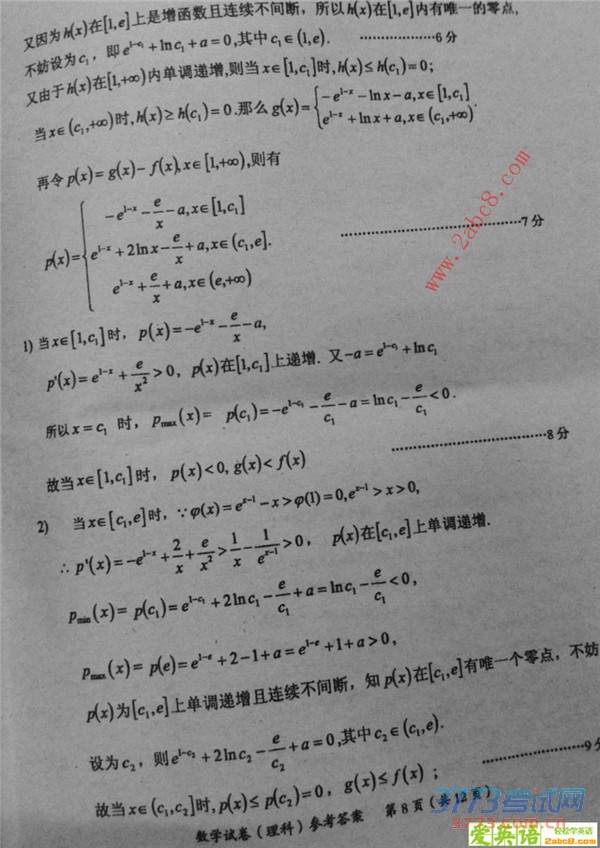 又因为h(x)在[1,e]上是增函数且连续不间断，所以h(x)在[1,e]内有唯一的零点,
不妨设为c₁，即e^{1-c₁}+lnc₁+a=0,其中c₁∈(1,e). ………………6分
又由于h(x)在[1,+∞)内单调递增,则当x∈[1,c₁]时,h(x)≤h(c₁)=0;
当x∈(c₁,+∞)时,h(x)≥h(c₁)=0.那么g(x)={-e^{1-x}-lnx-a,x∈[1,c₁]
e^{1-x}+lnx+a,x∈(c₁,+∞).
再令p(x)=g(x)-f(x),x∈[1,+∞),则有
p(x)={-e^{1-x}-e/x-a,x∈[1,c₁]
e^{1-x}+2lnx-e/x+a,x∈(c₁,e].
e^{1-x}+e/x+a,x∈(e,+∞)
………………………………7分
1) 当x∈[1,c₁]时，p(x)=-e^{1-x}-e/x-a,
p'(x)=e^{1-x}+e/x²>0，p(x)在[1,c₁]上递增. 又-a=e^{1-c₁}+lnc₁
所以x=c₁ 时，p_{max}(x)= p(c₁)=-e^{1-c₁}-e/c₁-a=lnc₁-e/c₁<0.
故当x∈[1,c₁]时，p(x)<0, g(x)<f(x) ………………………8分
2) 当x∈[c₁,e]时，∵φ(x)=e^{x-1}-x>φ(1)=0,e^{x-1}>x>0,
∴p'(x)=-e^{1-x}+2/x+e/x²>1/x-1/e^{x-1}>0， p(x)在[c₁,e]上单调递增.
p_{min}(x)= p(c₁)=e^{1-c₁}+2lnc₁-e/c₁+a=lnc₁-e/c₁<0,
p_{max}(x)= p(e)=e^{1-e}+2-1+a=e^{1-e}+1+a>0,
p(x)为[c₁,e]上单调递增且连续不间断，知p(x)在[c₁,e]有唯一个零点，不妨
设为c₂，则e^{1-c₂}+2lnc₂-e/c₂+a=0,其中c₂∈(c₁,e).
………………9分
故当x∈(c₁,c₂]时,p(x)≤p(c₂)=0，g(x)≤f(x)；
数学试卷（理科）参考答案 第8页（共12页）
www.2abc8.com
3773考试网
爱英语
轻松学英语
2abc8.com